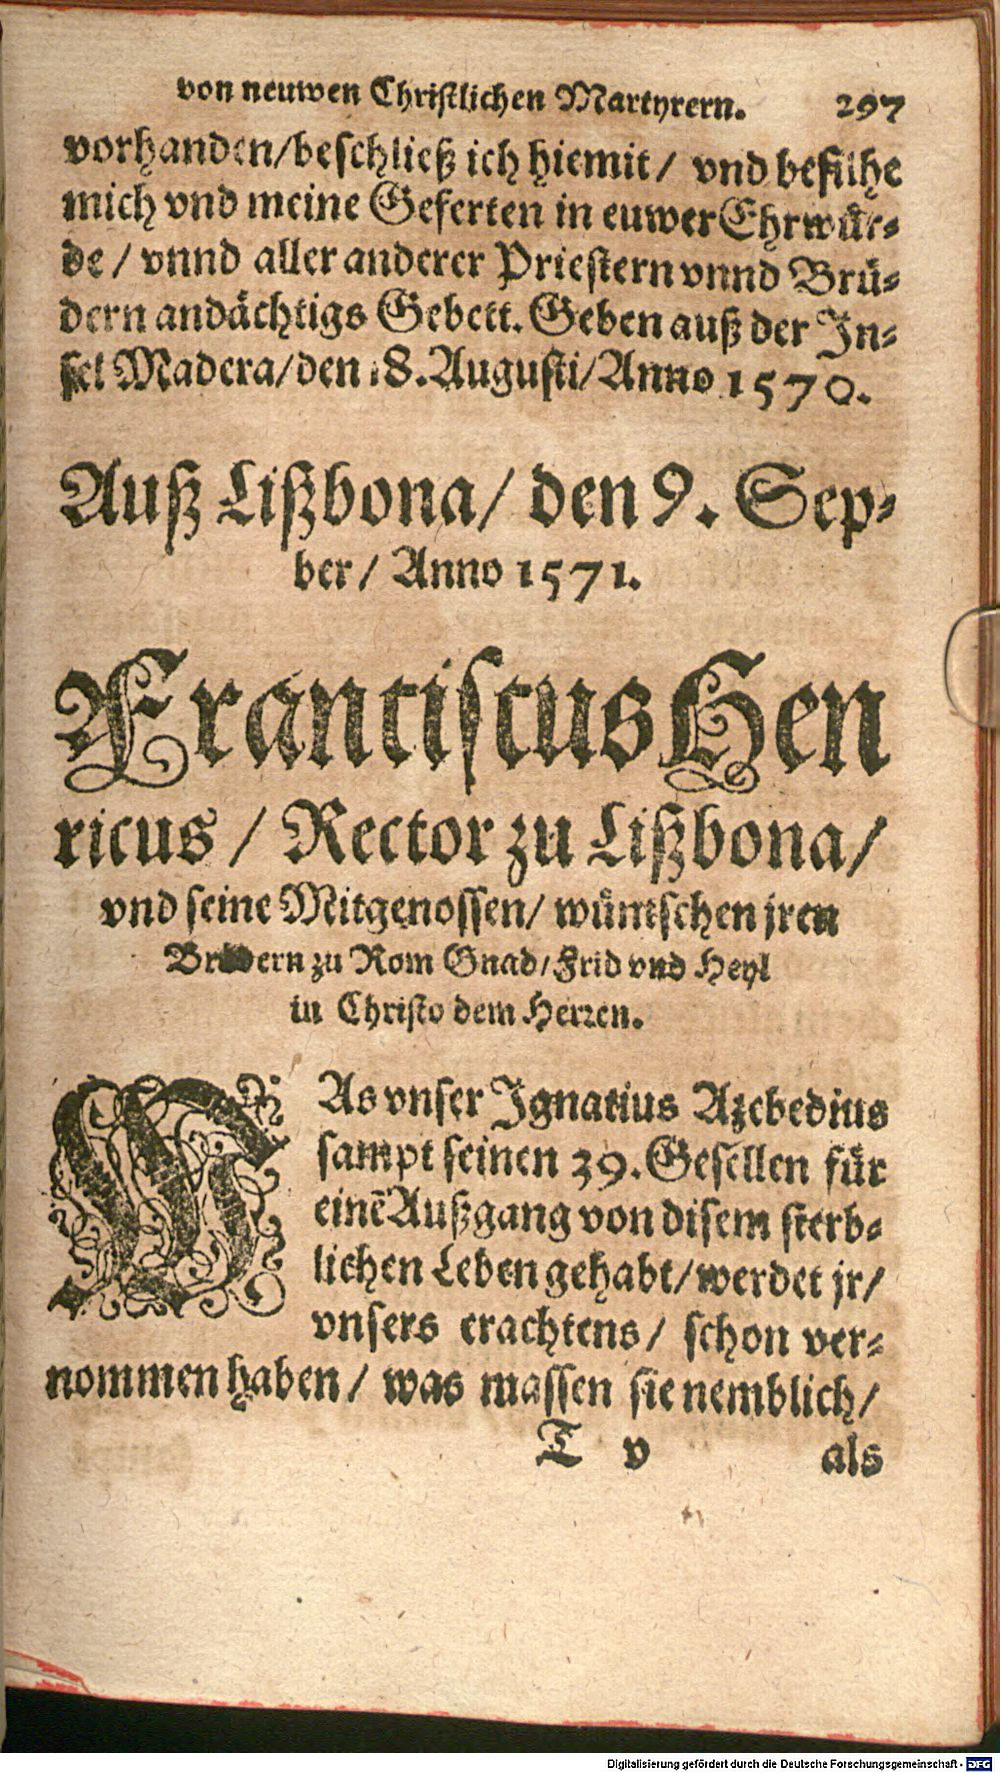 von neuwen Christlichen Martyrern. 297
vorhanden/beschließ ich hiemit/ vnd befilhe
mich vnd meine Geferten in euwer Ehrwür-
de / vnnd aller anderer Priestern vnnd Brü-
dern andächtigs Gebett. Geben auß der In-
sel Madera/den 18. Augusti/Anno 1570.
Auß Lißbona/ den 9. Sep-
ber/ Anno 1571.
Franciscus Hen
ricus / Rector zu Lißbona/
vnd seine Mitgenossen/ wüntschen jren
Brüdern zu Rom Gnad/Frid vnd Heyl
in Christo dem Herren.
WAs vnser Ignatius Azebedius
sampt seinen 39. Gesellen für
einē Außgang von disem sterb-
lichen Leben gehabt/werdet jr/
vnsers erachtens/ schon ver-
nommen haben/ was massen sie nemblich/
T v als
Digitalisierung gefördert durch die Deutsche Forschungsgemeinschaft - DFG